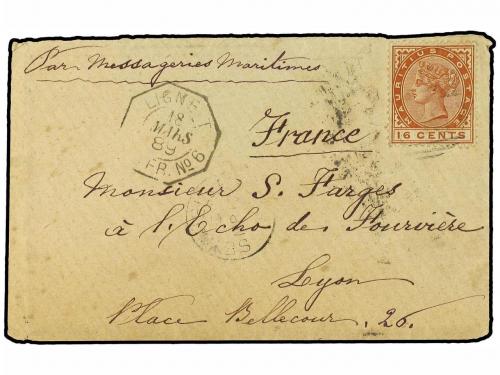 Par Messageries Maritimes
MAURITIUS POSTAGE
16 CENTS
LIGNE T
18
MARS
89
FR. No 6
France
Monsieur S. Farges
à l'Echo de Fourvière
Lyon
Place Bellecour. 26.